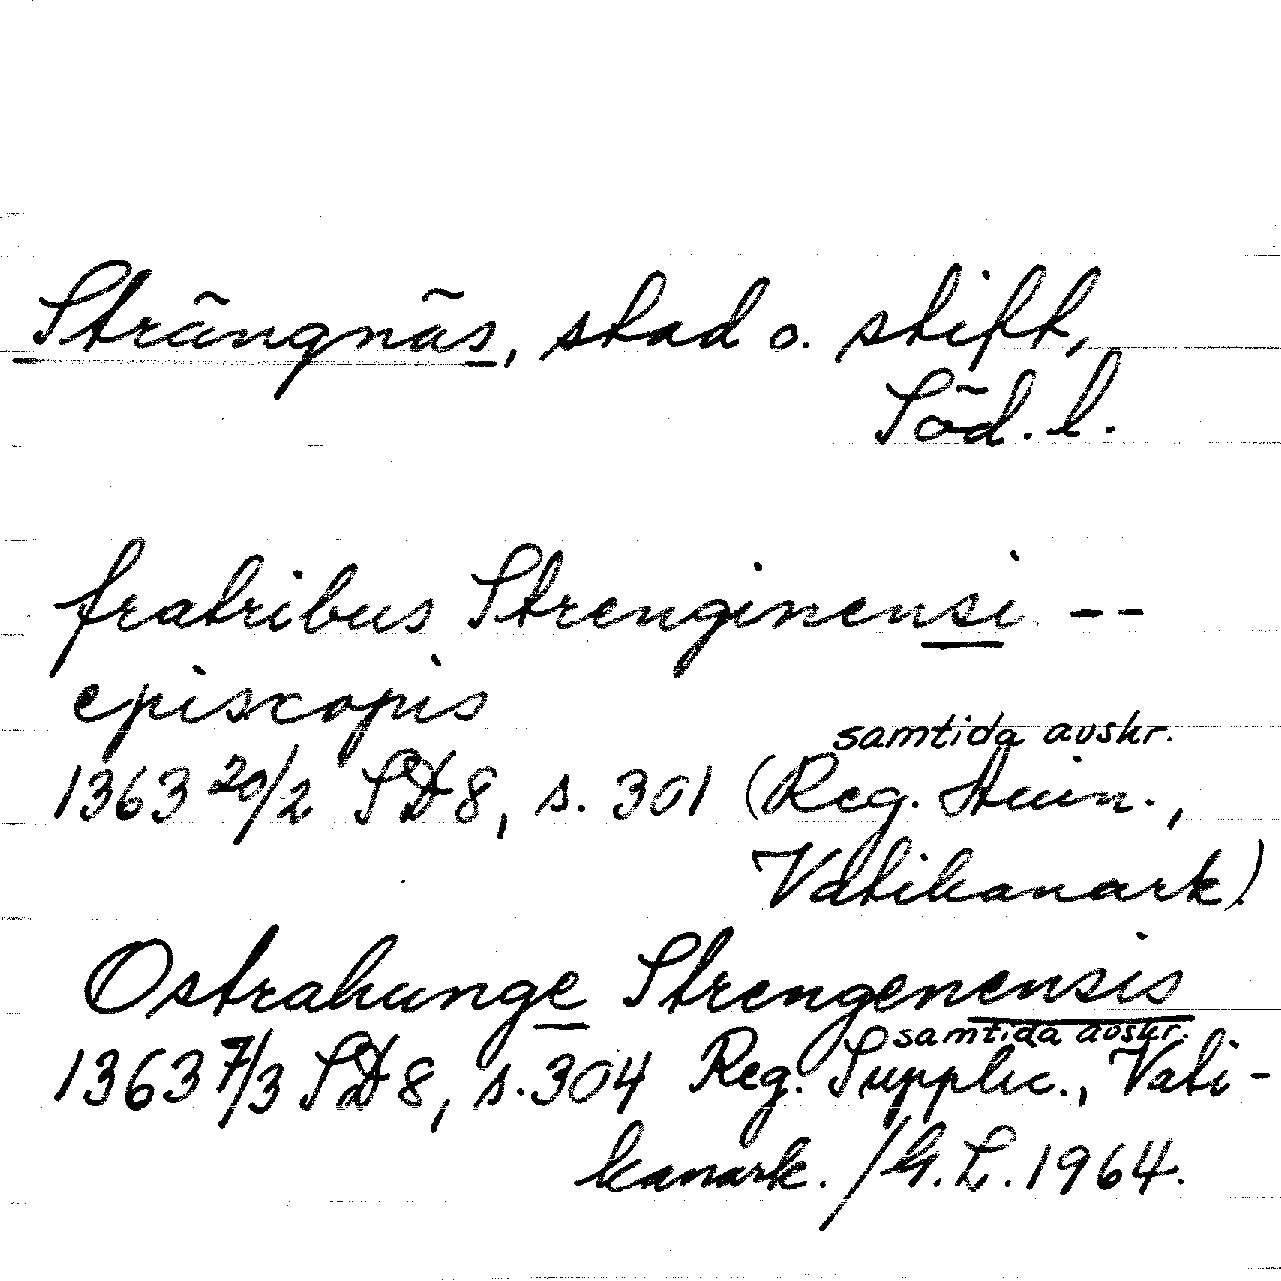 Strängnäs, stad o. stift,
Söd. l.
fratribus Strenginensi --
episcopis
samtida avskr.
1363 20/2 SD 8, s. 301 (Reg. Avin.,
Vatikanark)
Ostrahunge Strengenensis
samtida avskr.
1363 7/3 SD 8, s. 304 Reg. Supplic., Vati-
kanark. / G. L. 1964.